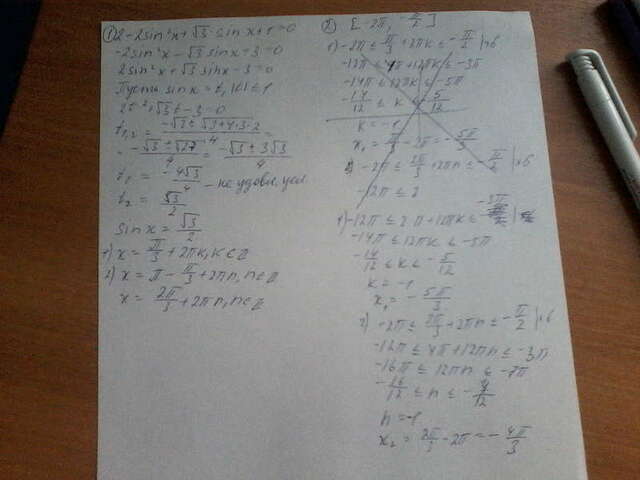 ① 2-2sin²x+√3·sinx+1=0
-2sin²x-√3sinx+3=0
2sin²x+√3sinx-3=0
Пусть sinx=t, |t|≤1
2t²+√3t-3=0
t₁,₂ = (-√3±√(3+4·3·2))/4 =
= (-√3±√27)/4 = (-√3±3√3)/4
t₁ = -4√3/4 - не удовл. усл
t₂ = √3/2
sinx = √3/2
1) x = π/3 + 2πk, k∈Z
2) x = π - π/3 + 2πn, n∈Z
x = 2π/3 + 2πn, n∈Z
2) [-2π, -π/2]
1) -2π ≤ π/3 + 2πk ≤ -π/2 |·6
-14π ≤ 12πk ≤ -5π
-14/12 ≤ k ≤ -5/12
k = -1
x₁ = π/3 - 2π = -5π/3
2) -2π ≤ 2π/3 + 2πn ≤ -π/2 |·6
-12π ≤ 2
1) -12π ≤ 2π + 12πk ≤ -3π
-14π ≤ 12πk ≤ -5π
-14/12 ≤ k ≤ -5/12
k = -1
x₁ = -5π/3
2) -2π ≤ 2π/3 + 2πn ≤ -π/2 |·6
-12π ≤ 4π + 12πn ≤ -3π
-16π ≤ 12πn ≤ -7π
-16/12 ≤ n ≤ -7/12
n = -1
x₂ = 2π/3 - 2π = -4π/3